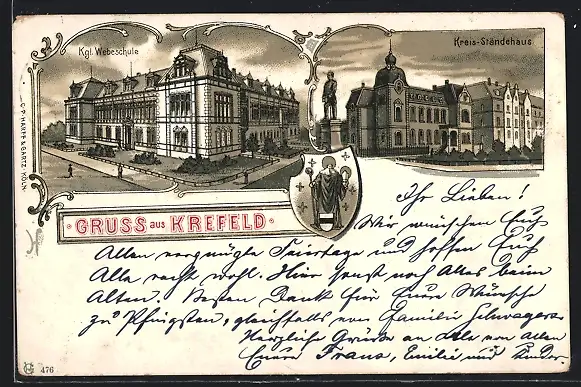 Kgl. Webeschule
Kreis-Ständehaus
C. P. HARFF & GARTZ, KÖLN
GRUSS aus KREFELD
Ihr Lieben!
Wir wünschen Euch
Allen vergnügte Feiertage und hoffen Euch
Alle recht wohl. Hier sonst noch Alles beim
Alten. Besten Dank für Eure Wünsche
zu Pfingsten, gleichfalls von Familie
Herzliche Grüße an Alle von Allen
Euren Franz, Emilie und Kinder.
476